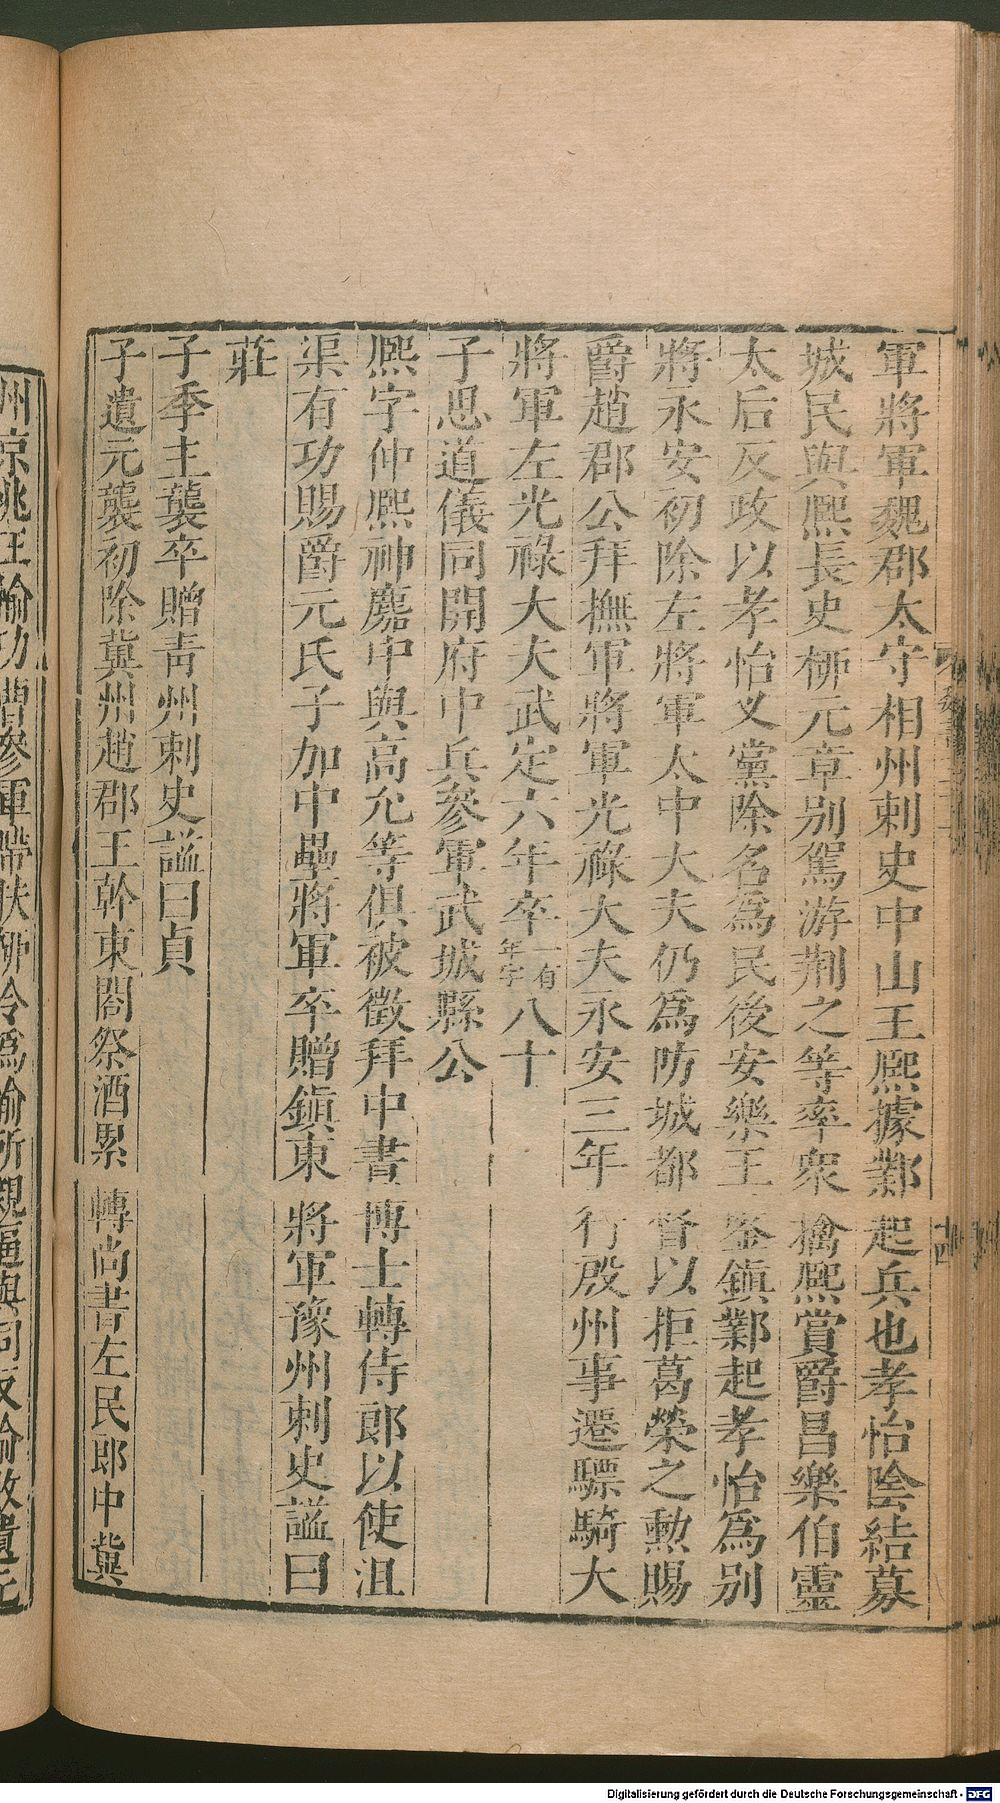 軍將軍魏郡太守相州刺史中山王熈據鄴起兵也孝怡陰結募
城民與熈長史栁元章别駕游荆之等率衆擒熈賞爵昌樂伯靈
太后反政以孝怡乂黨除名爲民後安樂王鉴鎭鄴起孝怡爲别
將永安初除左將軍太中大夫仍爲防城都督以拒葛榮之勲賜
爵趙郡公拜撫軍將軍光祿大夫永安三年行殷州事遷驃騎大
將軍左光祿大夫武定六年卒一有年字八十
子思道儀同開府中兵參軍武城縣公
熈字仲熈神䴥中與高允等俱被徵拜中書博士轉侍郎以使沮
渠有功賜爵元氏子加中壘將軍卒贈鎭東將軍豫州刺史謚曰
莊
子季主襲卒贈青州刺史謚曰貞
子遺元襲初除冀州趙郡王幹東閤祭酒累轉尚書左民郎中冀
州京兆王愉功曹參軍帶扶柳令爲愉所親逼與同反愉敗遺元
Digitalisierung gefördert durch die Deutsche Forschungsgemeinschaft - DFG